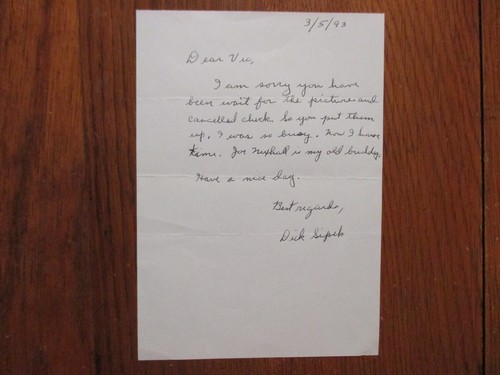 3/5/93
Dear Vic,
I am sorry you have
been wait for the picture and
cancelled check. So you put them
up. I was so busy. Now I have
time. Joe Nuxhall is my old buddy.
Have a nice day.
Best regards,
Dick Sipek